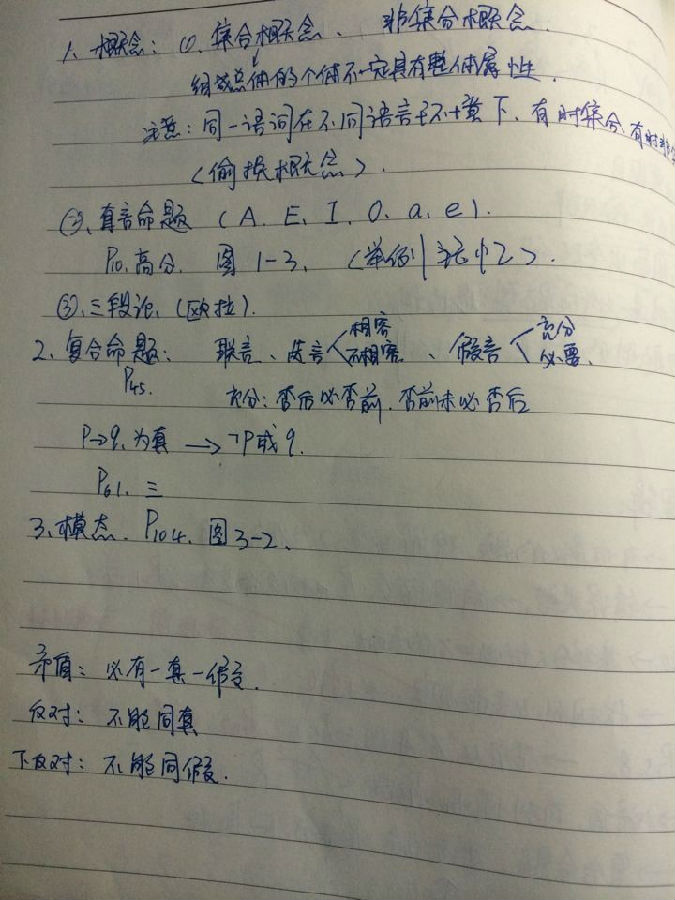 1. 概念: ①. 集合概念、 非集合概念.
↓
组成总体的个体不一定具有整体属性.
注意: 同一语词在不同语言环境下、有时集合、有时非
<偷换概念>.
②、直言命题 (A、E、I、O、a、e).
P10. 高分. 图1-3.
③、三段论. (欧拉).
2、复合命题: 联言、选言<相容 不相容、假言<充分 必要.
P45. 充分: 否后必否前. 否前未必否后
P→q. 为真 → ¬P或q.
P61. 三
3、模态. P104. 图3-2、
矛盾: 必有一真一假.
反对: 不能同真
下反对: 不能同假.